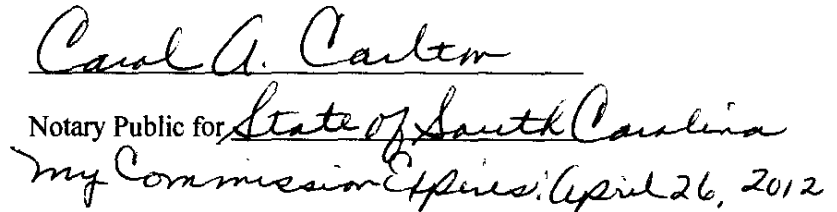 Carol A. Carlton
Notary Public for State of South Carolina
My Commission Expires: April 26, 2012